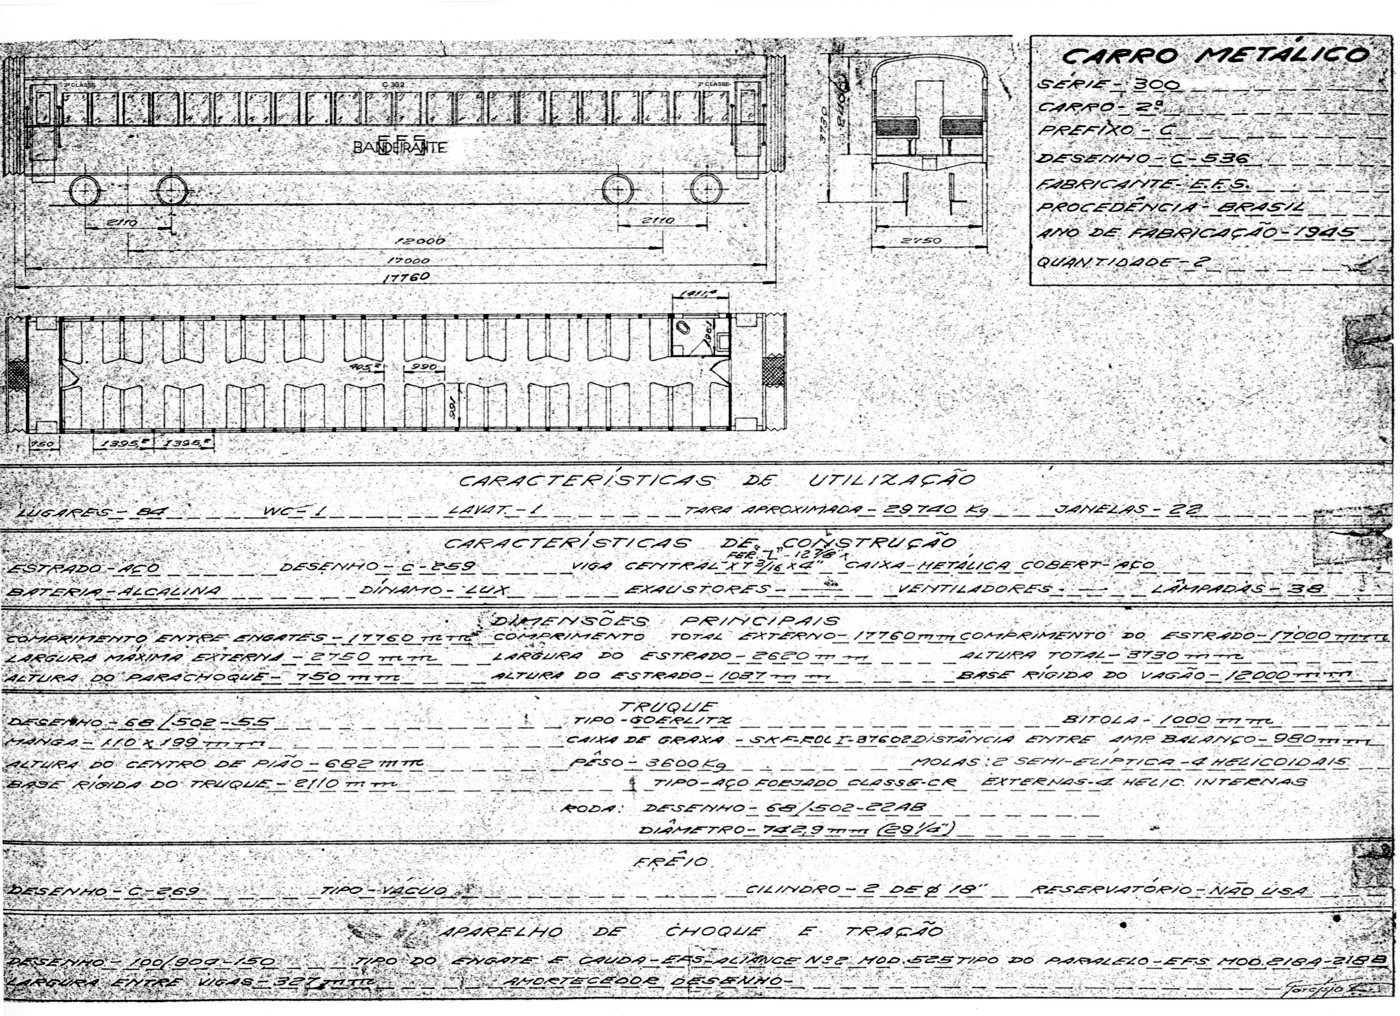 CARRO METÁLICO
SÉRIE - 300
CARRO - 2ª
PREFIXO - C
DESENHO - C-536
FABRICANTE - E.F.S.
PROCEDÊNCIA - BRASIL
ANO DE FABRICAÇÃO - 1945
QUANTIDADE - 2
2ª CLASSE
C-302
2ª CLASSE
E.F.S
BANDEIRANTE
2110
2110
12000
17000
17760
3730
2750
1411,4
1061
405,2
990
981
750
1395,2
1395,2
CARACTERÍSTICAS DE UTILIZAÇÃO
LUGARES - 84 WC - 1 LAVAT. - 1 TARA APROXIMADA - 29740 Kg JANELAS - 22
CARACTERÍSTICAS DE CONSTRUÇÃO
ESTRADO - AÇO DESENHO - C-259 VIGA CENTRAL CAIXA - METÁLICA COBERT - AÇO
BATERIA - ALCALINA DÍNAMO - LUX EXAUSTORES - VENTILADORES - LÂMPADAS - 38
DIMENSÕES PRINCIPAIS
COMPRIMENTO ENTRE ENGATES - 17760 mm COMPRIMENTO TOTAL EXTERNO - 17760 mm COMPRIMENTO DO ESTRADO - 17000 mm
LARGURA MÁXIMA EXTERNA - 2750 mm LARGURA DO ESTRADO - 2620 mm ALTURA TOTAL - 3730 mm
ALTURA DO PARACHOQUE - 750 mm ALTURA DO ESTRADO - 1037 mm BASE RÍGIDA DO VAGÃO - 12000 mm
TRUQUE
DESENHO - 68/502-55 TIPO - GOERLITZ BITOLA - 1000 mm
MANGA - 110 x 199 mm CAIXA DE GRAXA - SKF-ROLT-37602 DISTÂNCIA ENTRE AMP. BALANÇO - 980 mm
ALTURA DO CENTRO DE PIÃO - 682 mm PÊSO - 3600 Kg MOLAS: 2 SEMI-ELÍPTICA - 4 HELICOIDAIS
BASE RÍGIDA DO TRUQUE - 2110 mm TIPO - AÇO FORJADO CLASSE-CR EXTERNAS - 4 HELIC. INTERNAS
RODA: DESENHO - 68/502-22AB
DIÂMETRO - 742,9 mm (29 1/4")
FRÊIO
DESENHO - C-269 TIPO - VÁCUO CILINDRO - 2 DE Ø 18" RESERVATÓRIO - NÃO USA
APARELHO DE CHOQUE E TRAÇÃO
DESENHO - 100/904-150 TIPO DO ENGATE E CAUDA - EFS-ALIANCE Nº2 MOD.525 TIPO DO PARALELO - EFS MOD.218A-218B
LARGURA ENTRE VIGAS - 327 mm AMORTECEDOR DESENHO -